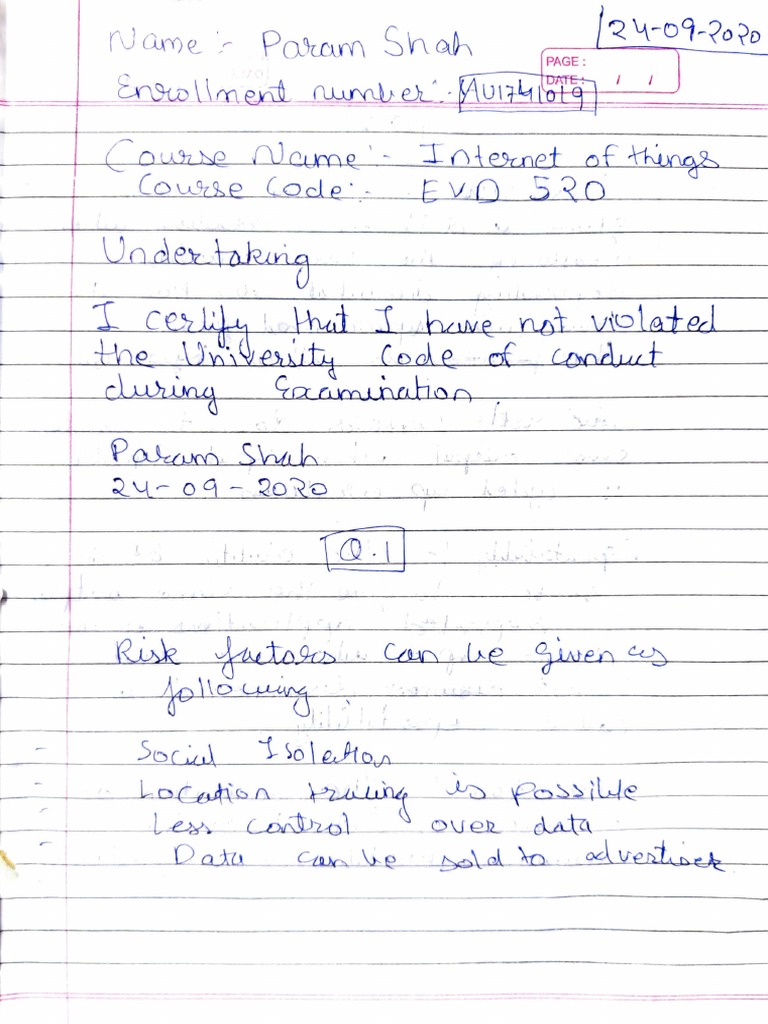 24-09-2020
Name:- Param Shah
PAGE:
DATE: / /
Enrollment number:- AU1741019
Course Name:- Internet of things
Course Code:- EVD 520
Undertaking
I certify that I have not violated
the University Code of conduct
during Examination.
Param Shah
24-09-2020
Q.1
Risk factors can be given as
following.
- Social Isolation
- Location tracing is possible
- Less control over data
- Data can be sold to